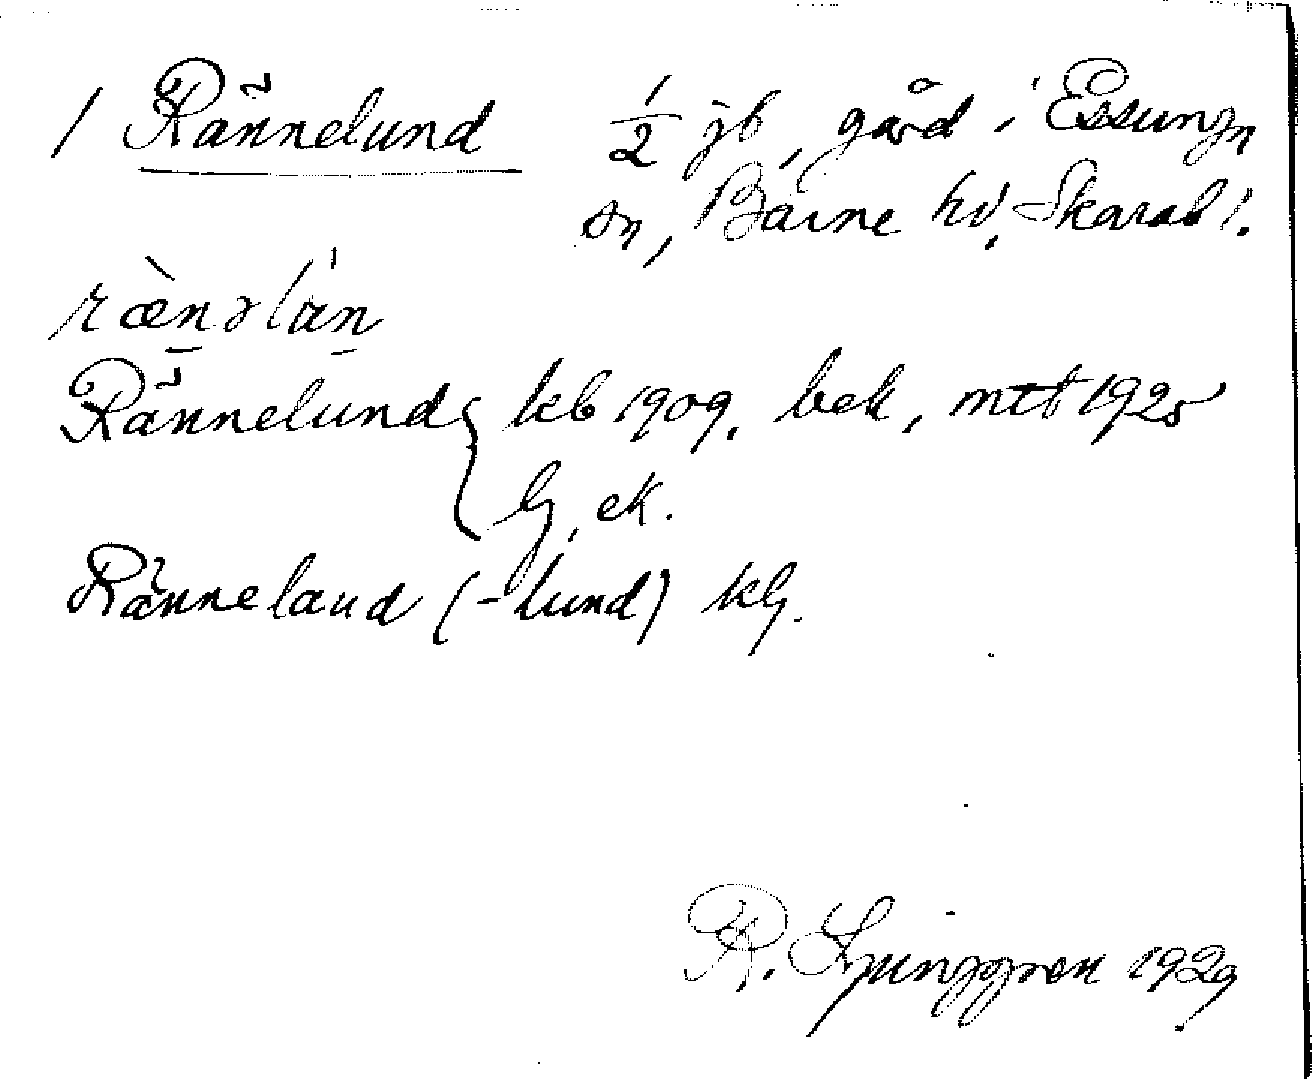 1 Rännelund ½ jb, gård i Essunga
sn, Barne hd, Skarab l.
Rännelund { kb 1909. bek, mtb 1925
lj, ek.
Ränneland (-lund) klj.
R. Ljunggren 1929